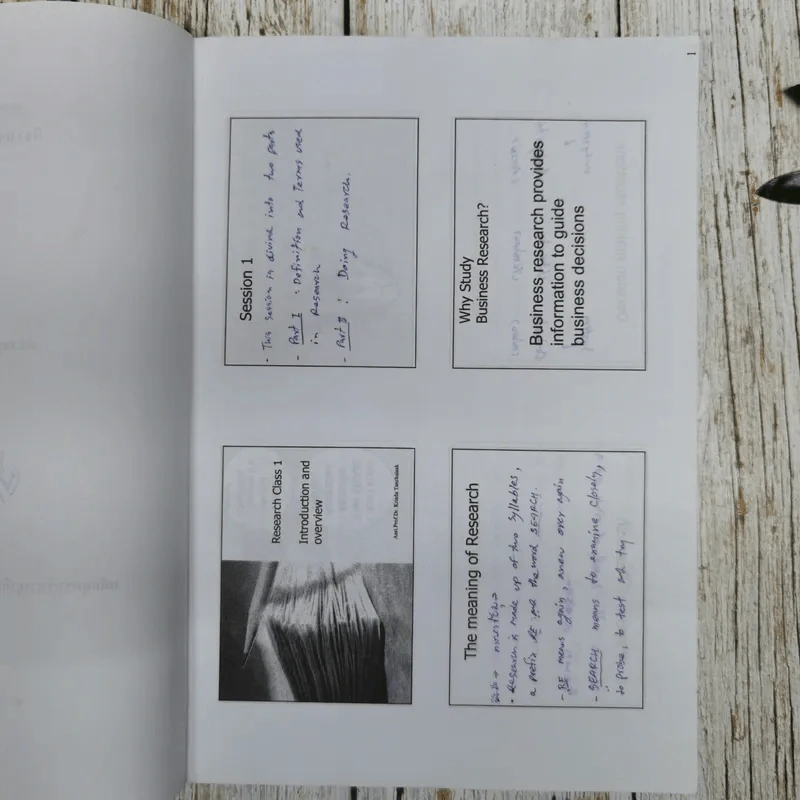 1
Research Class 1
Introduction and
overview
Session 1
- This session is divine into two parts
- Part I : Definition and Terms used
in Research
- Part II : Doing Research.
The meaning of Research
- Research is made up of two syllables,
a prefix RE and the word SEARCH.
- RE means again, anew over again
- SEARCH means to examine closely,
to probe, to test and try
Why Study
Business Research?
Business research provides
information to guide
business decisions